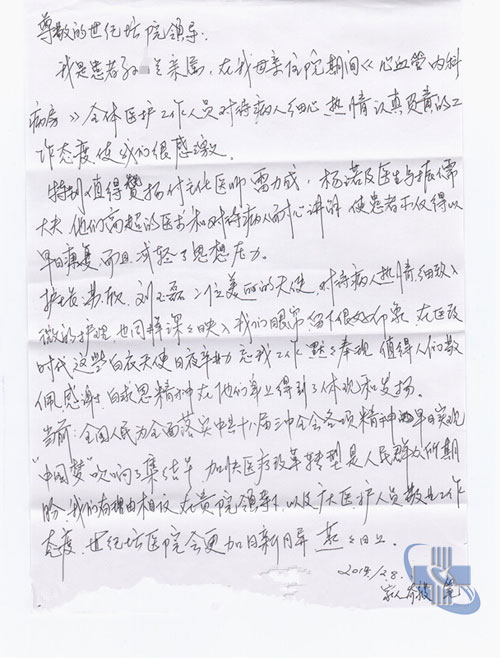 尊敬的世纪坛院领导:
我是患者 兰亲属,在我母亲住院期间《心血管内科
病房》全体医护工作人员对待病人细心 热情 认真负责的工
作态度使我们很感激。
特别值得赞扬付主任医师雷力成,杨诺及医生
大夫 他们高超的医术和对待病人耐心讲解 使患者不仅得以
早日康复,而且减轻了思想压力。
护士 欣 刘玉磊二位美丽的天使,对待病人热情,细致入
微的护理,也同样深深映入我们的眼帘留下很好印象,在医改
时代这些白衣天使日夜辛勤忘我工作默默奉献 值得人们敬
佩感谢,白求恩精神在他们身上得到了体现和发扬。
当前:全国人民为全面落实中共十八届三中全会各项精神的早日实现
“中国梦”吹响了集结号 加快医疗改革转型是人民群众所期
盼,我们有理由相信,在贵院领导,以及广大医护人员敬业工作
态度,世纪坛医院会更加日新月异 蒸蒸日上。
2014.1.28.
家人 笔